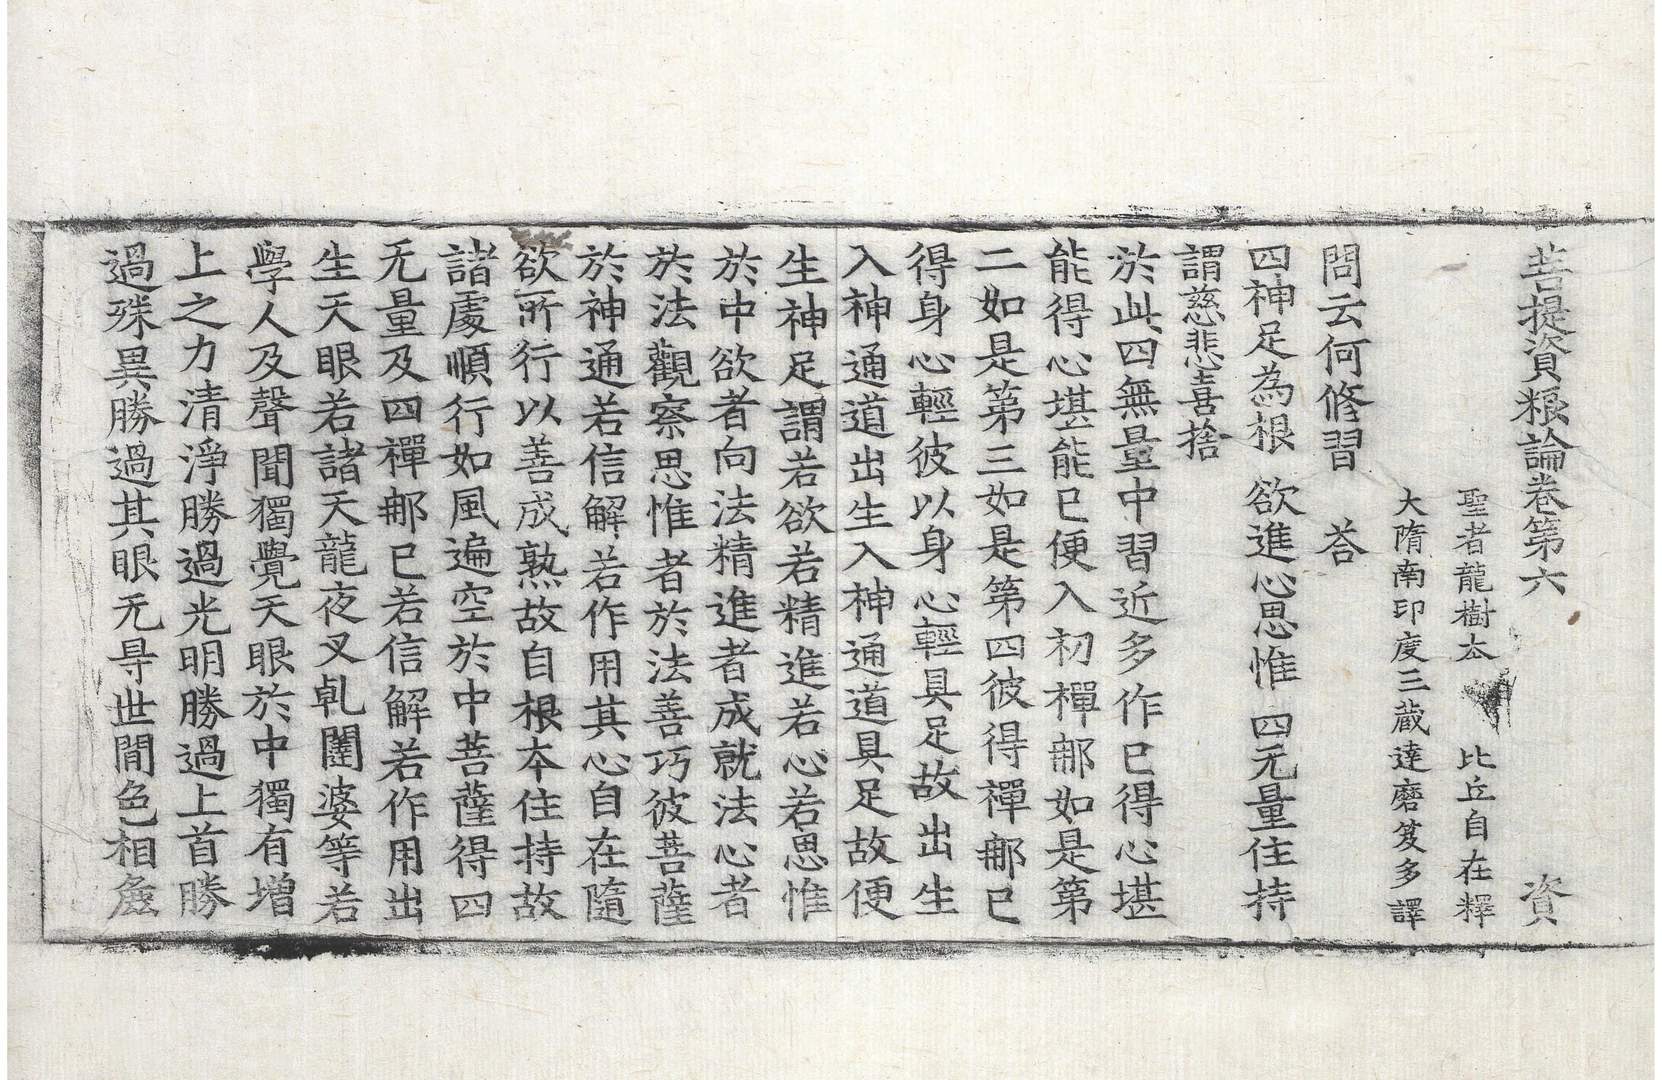 菩提資粮論卷第六 資
聖者龍樹夲 比丘自在釋
大隋南印度三藏達磨笈多譯
問云何修習 荅
四神足為根 欲進心思惟 四无量住持
謂慈悲喜捨
於此四無量中習近多作已得心堪
能得心堪能已便入初禪那如是第
二如是第三如是第四彼得禪那已
得身心輕彼以身心輕具足故出生
入神通道出生入神通道具足故便
生神足謂若欲若精進若心若思惟
於中欲者向法精進者成就法心者
於法觀察思惟者於法善巧彼菩薩
於神通若信解若作用其心自在隨
欲所行以善成熟故自根夲住持故
諸處順行如風遍空於中菩薩得四
无量及四禪那已若信解若作用出
生天眼若諸天龍夜叉乹闥婆等若
學人及聲聞獨覺天眼於中獨有增
上之力清淨勝過光明勝過上首勝
過殊異勝過其眼无㝵世間色相麁